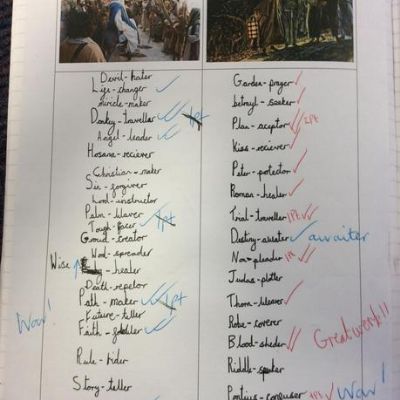 Devil-hater
Life-changer
miricle-maker
Donkey-traveller 1pt
Angel-leader
Hosana-reciever
Christian-maker
Sin-forgiver
Lord-instructor
Palm-
Tough-facer 1pt
Croud-creator
Word-spreader
Wise healer
Death-repelor
Path-maker 1pt
Future-teller
Faith-
Wow!
Rule-rider
Story-teller
Garden-prayer
betrayl-seeker
Plan-aceptor 2pt
Kiss-reciever
Peter-protector
Roman-healer
Trial-traveller 1pt
Destiny-awaiter awaiter
Non-pleader
Judas-plotter
Thorn-
Robe-coverer
Blood-sheder
Great work!!
Riddle-
Pontius-confuser Wow!